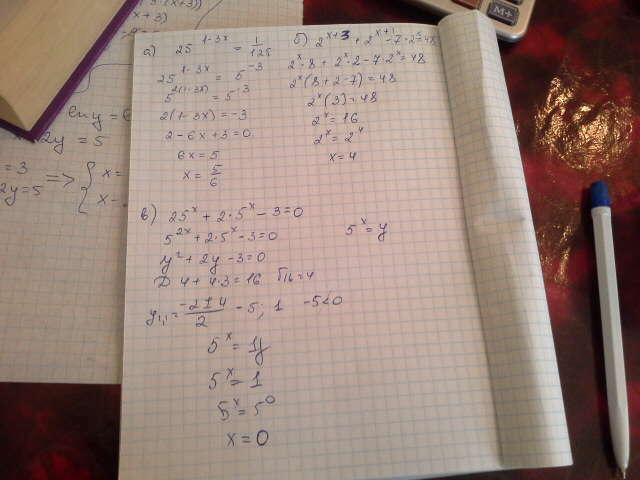 а) 25^(1-3x) = 1/125
25^(1-3x) = 5^(-3)
5^(2(1-3x)) = 5^(-3)
2(1-3x) = -3
2-6x+3=0
6x = 5
x = 5/6
б) 2^(x+3) + 2^(x+1) - 7·2^x = 48
2^x·8 + 2^x·2 - 7·2^x = 48
2^x(8+2-7) = 48
2^x(3) = 48
2^x = 16
2^x = 2^4
x = 4
в) 25^x + 2·5^x - 3 = 0
5^(2x) + 2·5^x - 3 = 0
5^x = y
y² + 2y - 3 = 0
D 4 + 4·3 = 16 √16 = 4
y₁,₂ = (-2±4)/2 - 5; 1 -5<0
5^x = y
5^x = 1
5^x = 5^0
x = 0
x+3)
2y = 5
= 3
2y = 5 => { x =
x -
M+